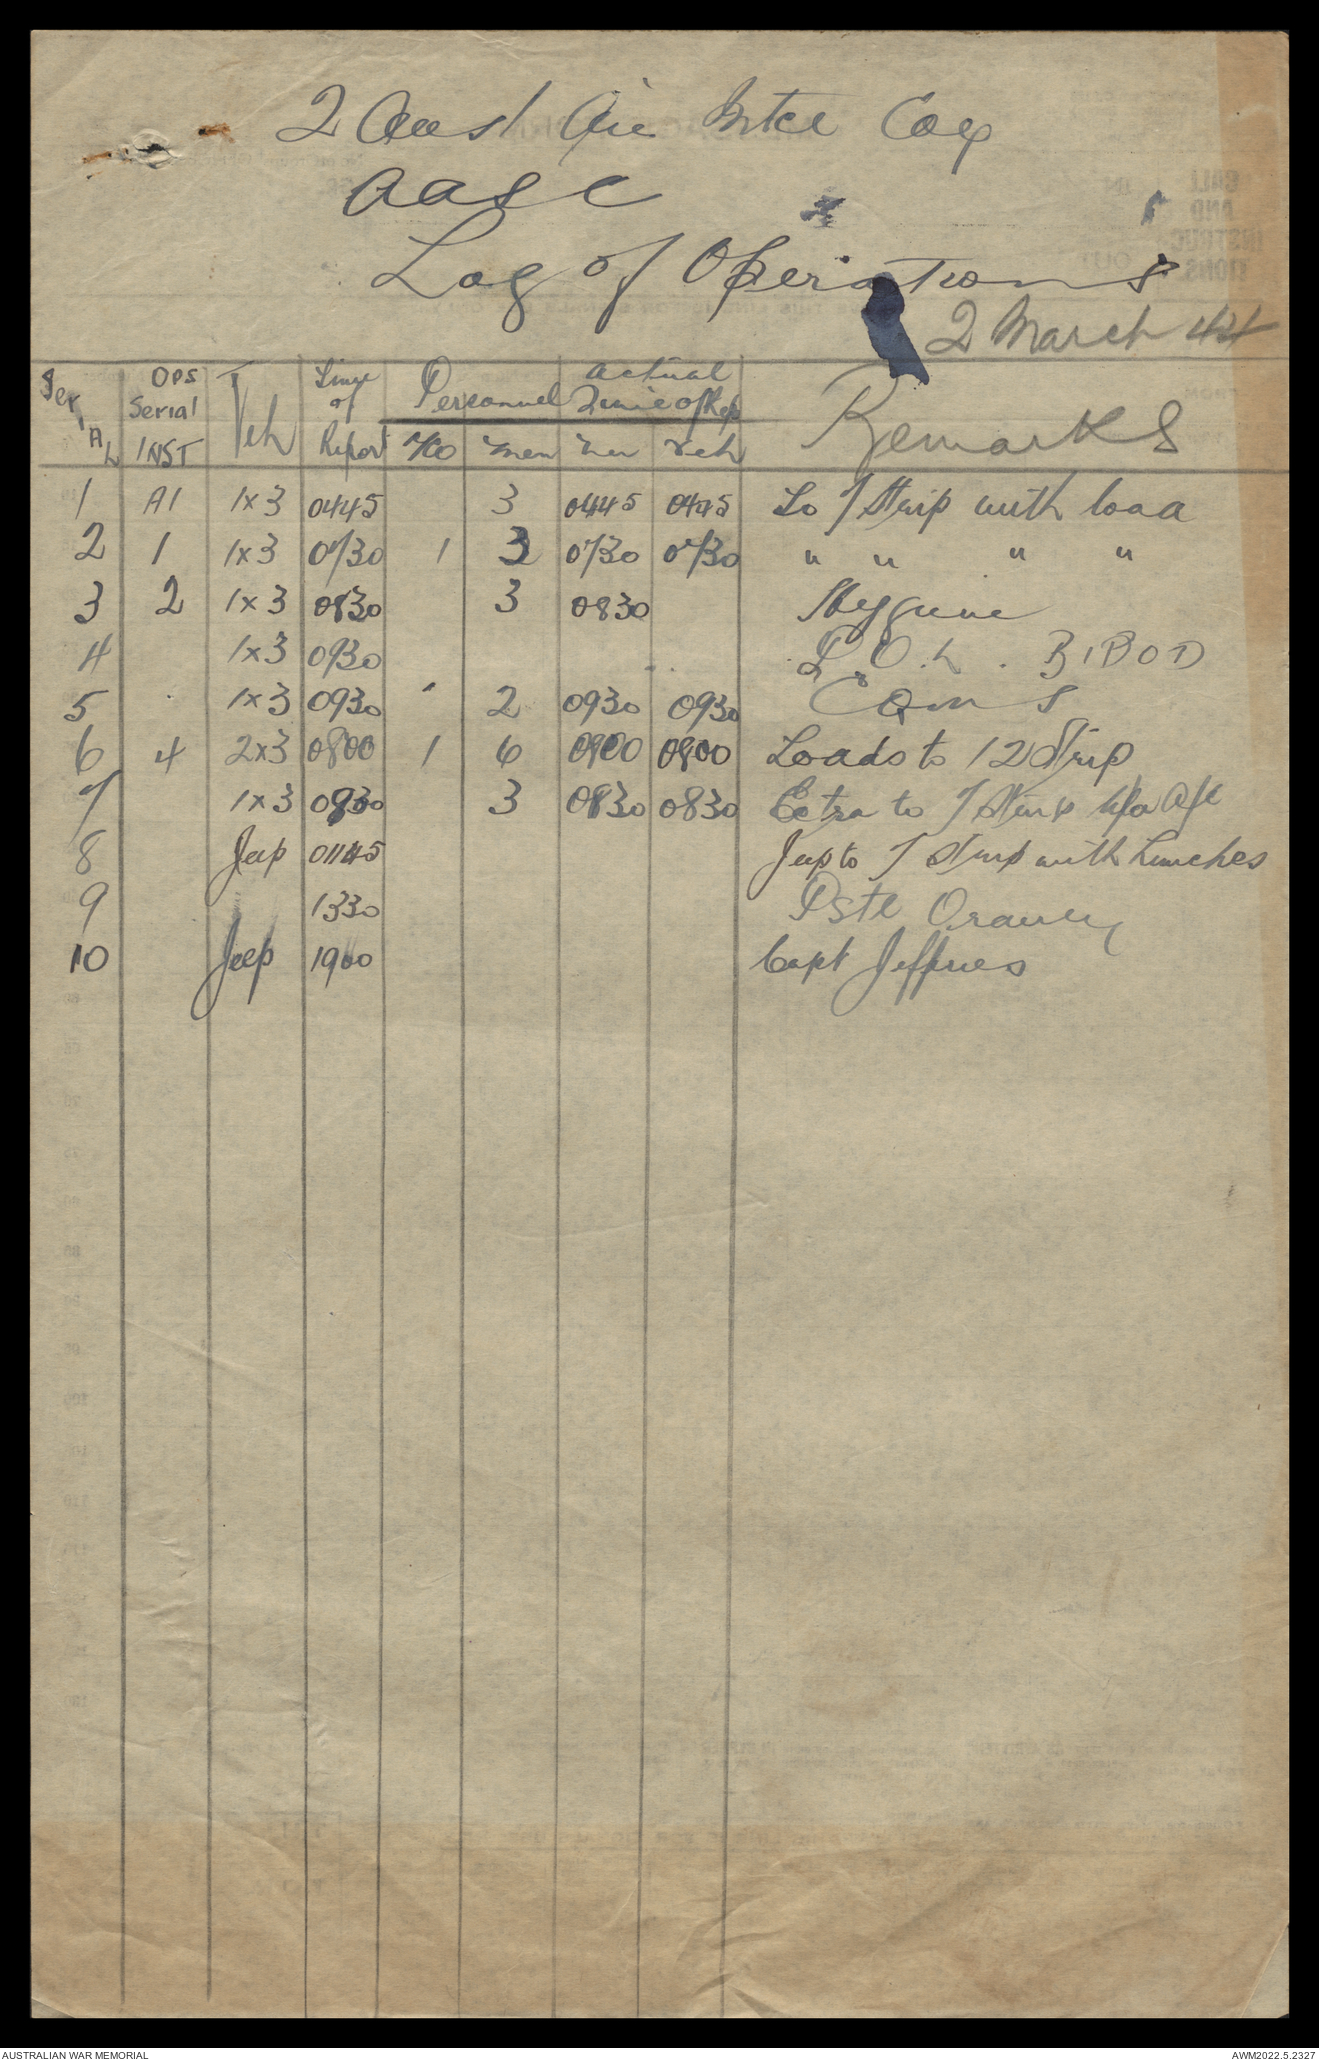 2 Aust Air Mtce Coy
AASC
Log of Operations
2 March 44
Serial | OPS Serial INST | Veh | Time of Report | Personnel | Actual Time of Rep | Remarks
No | men | men | Veh
1 A1 1x3 0445 3 0445 0445 To 7 Strip with load
2 1 1x3 0730 1 3 0730 0730 " " " "
3 2 1x3 0830 3 0830 Hygiene
4 1x3 0930 B1BOD
5 1x3 0930 2 0930 0930 CQMS
6 4 2x3 0800 1 6 0800 0800 Loads to 12 Strip
7 1x3 0830 3 0830 0830 Extra to 7 Strip
8 Jeep 01145 Jeep to 7 Strip with Lunches
9 1330
10 Jeep 1900 Capt Jeffries
AUSTRALIAN WAR MEMORIAL
AWM2022.5.2327